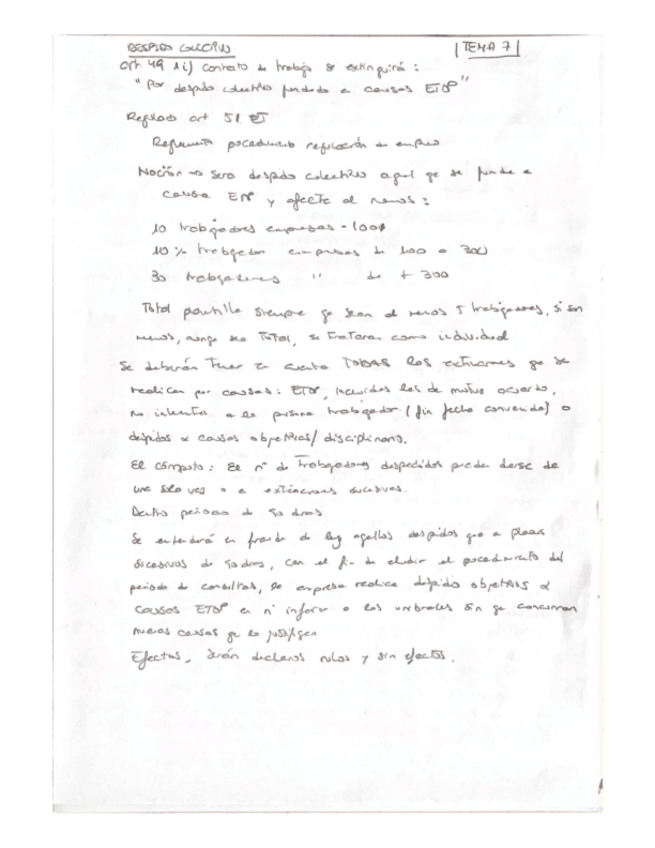 DESPIDO COLECTIVO
TEMA 7
art. 49 1 i) contrato de trabajo se extinguirá:
"Por despido colectivo fundado en causas ETOP"
Regulado art 51 ET
Reglamento procedimiento regulación de empleo
Noción → Será despido colectivo aquel qe se funde e
causa ETOP y afecte al menos:
10 trabajadores empresas - 100
10% trabajador empresas de 100 a 300
30 trabajadores " de + 300
Total plantilla siempre qe sean al menos 5 trabajadores, si son
menos, aunqe sea Total, se trataran como individual
Se deberán tener en cuenta TODAS las extinciones qe se
realicen por causas: ETOP, incluidos las de mutuo acuerdo,
no a la persona trabajador (fin fecha convenida) o
despidos x causas objetivas/ disciplinario.
El cómputo: El nº de trabajadores despedidos pueden darse de
una sola vez o e extinciones sucesivas.
Dentro periodo de 90 dias
Se entenderá en fraude de ley aqellos despidos que e plazos
sucesivos de 90 dias, con el fin de eludir el procedimiento del
periodo de consultas, la empresa realice despido objetivos x
causas ETOP en nº inferior a los umbrales sin qe concurran
nuevas causas qe lo justifiqen
Efectos; serán declarados nulos y sin efectos.